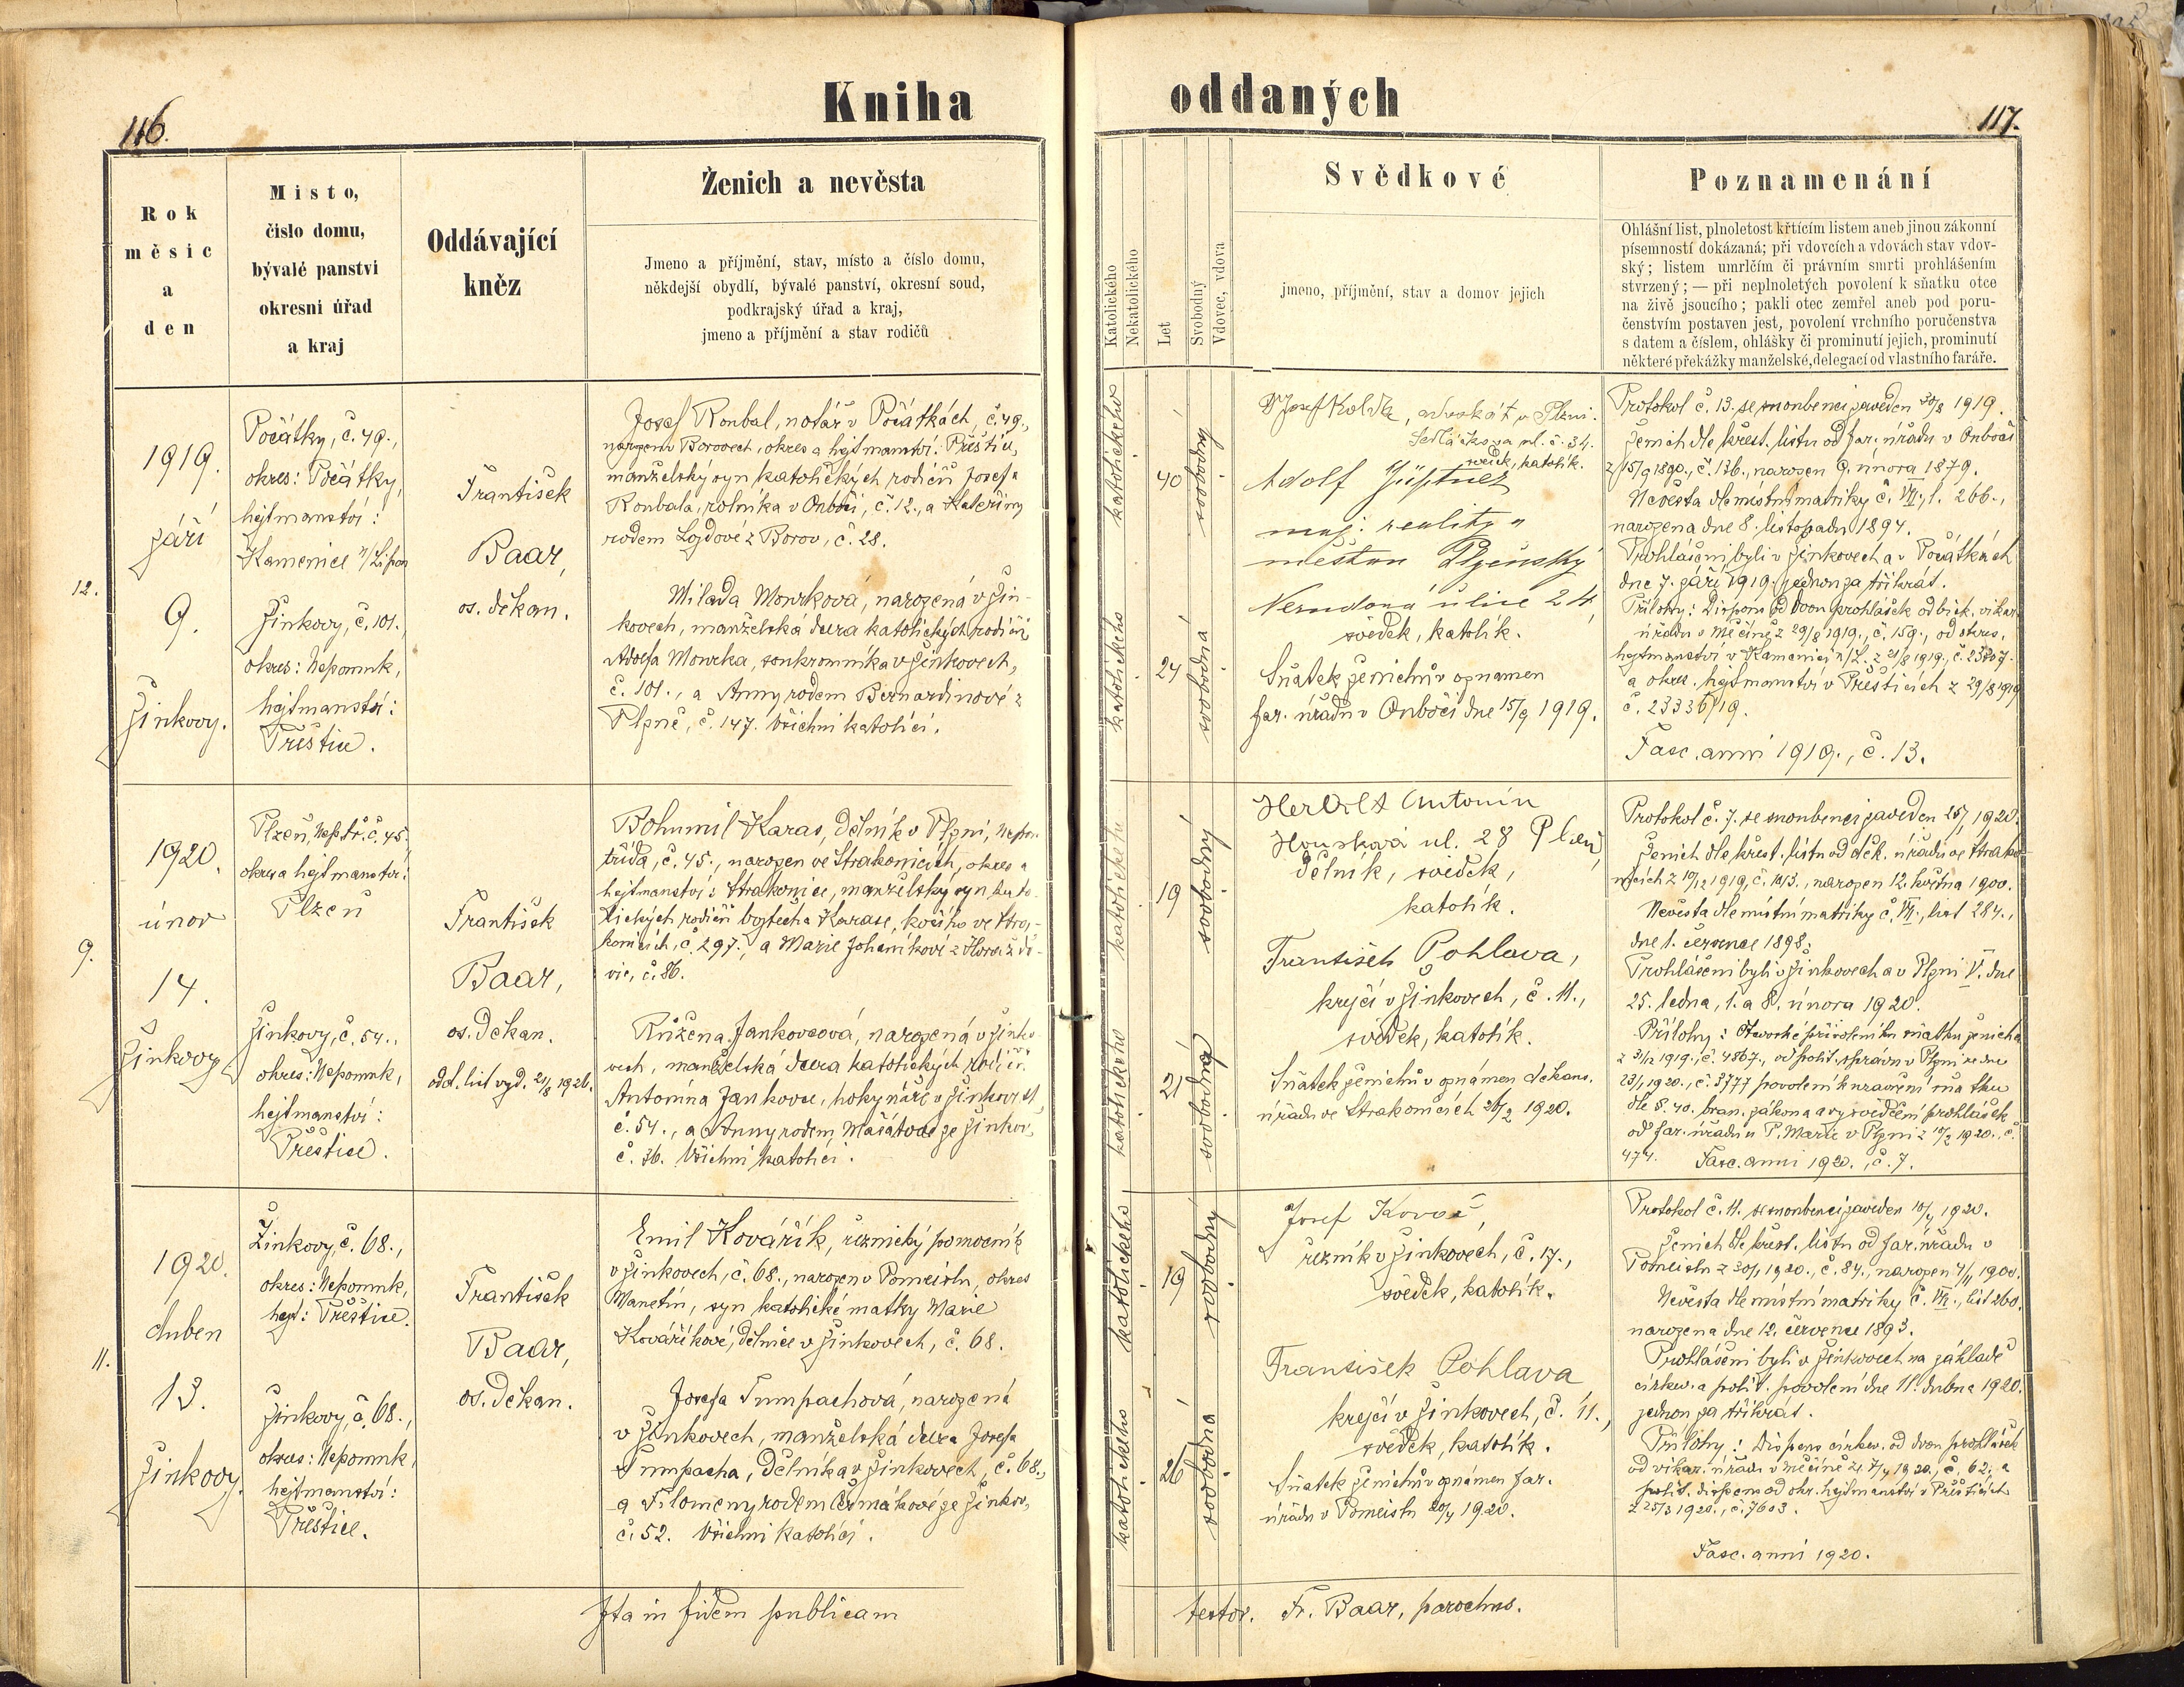 Kniha
oddaných
116.
117.
Rok
měsíc
a
den
Místo,
číslo domu,
bývalé panství
okresní úřad
a kraj
Oddávající
kněz
Ženich a nevěsta
Jmeno a příjmění, stav, místo a číslo domu,
někdejší obydlí, bývalé panství, okresní soud,
podkrajský úřad a kraj,
jmeno a příjmění a stav rodičů
Katolického
Nekatolického
Let
Svobodný
Vdovec, vdova
Svědkové
jmeno, příjmění, stav a domov jejich
Poznamenání
Ohlášní list, plnoletost křtícím listem aneb jinou zákonní
písemností dokázaná; při vdovcích a vdovách stav vdov-
ský; listem umrlčím či právním smrti prohlášením
stvrzený; — při neplnoletých povolení k sňatku otce
na živě jsoucího; pakli otec zemřel aneb pod poru-
čenstvím postaven jest, povolení vrchního poručenstva
s datem a číslem, ohlášky či prominutí jejich, prominutí
některé překážky manželské, delegací od vlastního faráře.
12.
1919.
září
9.
Žinkovy.
Počátky, č. 49.,
okres: Počátky,
hejtmanství:
Kamenice n/Lipou
Žinkovy, č. 101.,
okres: Nepomuk,
hejtmanství:
Přeštice.
František
Baar,
os. děkan.
Josef Roubal, notář v Počátkách, č. 49.,
narozen v Borovech, okres a hejtmanství: Přeštice,
manželský syn katolických rodičů Josefa
Roubala, rolníka v Ouboči, č. 12., a Kateřiny
rodem Lojdové z Borov, č. 28.
Milada Mourková, narozená v Žin-
kovech, manželská dcera katolických rodičů
Adolfa Mourka, soukromníka v Žinkovech,
č. 101., a Anny rodem Bernardinové z
Plzně, č. 147. Všichni katolíci.
katolického
40
svobodný
katolického
24
svobodná
Dr Josef Kolda, advokát v Plzni.
Sedláčkova ul. č. 34.
svědek, katolík.
Adolf
maj. reality a
měšťan Plzeňský
Nerudova ulice 24
svědek, katolík.
Sňatek ženichův oznámen
far. úřadu v Ouboči dne 15/9 1919.
Protokol č. 13. se snoubenci zaveden 30/8 1919.
Ženich dle křest. listu od far. úřadu v Ouboči
z 15/9 1890., č. 136., narozen 9. února 1879.
Nevěsta dle místní matriky č. VII., l. 266.,
narozena dne 8. listopadu 1894.
Prohlášeni byli v Žinkovech a v Počátkách
dne 7. září 1919. jednou za třikrát.
Přílohy: Dispens od dvou prohlášek od bisk. vikar.
úřadu v Měčíně z 29/8 1919., č. 159., od okres.
hejtmanství v Kamenici n/L. z 21/8 1919., č. 23707.
a okres. hejtmanství v Přešticích z 29/8 1919
č. 23336/19.
Fasc. anni 1919., č. 13.
9.
1920.
únor
14.
Žinkovy
Plzeň, Nep. tř. č. 45
okres a hejtmanství:
Plzeň
Žinkovy, č. 54.,
okres: Nepomuk,
hejtmanství:
Přeštice.
František
Baar,
os. děkan.
odd. list vyd. 21/8 1926.
Bohumil Karas, dělník v Plzni, Nepom.
třída, č. 45., narozen ve Strakonicích, okres a
hejtmanství: Strakonice, manželský syn kato-
lických rodičů Vojtěcha Karase, kočího ve Stra-
konicích, č. 297., a Marie Johaníkové z Horažďo-
vic, č. 86.
Růžena Jankovcová, narozená v Žinko-
vech, manželská dcera katolických rodičů
Antonína Jankovce, hokynáře v Žinkovech,
č. 54., a Anny rodem Mašátové ze Žinkov,
č. 36. Všichni katolíci.
katolického
19
svobodný
katolického
21
svobodná
Antonín
Houškova ul. 28 Plzeň
dělník, svědek,
katolík.
František Pohlava,
krejčí v Žinkovech, č. 11.,
svědek, katolík.
Sňatek ženichův oznámen děkans.
úřadu ve Strakonicích 26/2 1920.
Protokol č. 7. se snoubenci zaveden 25/1 1920.
Ženich dle křest. listu od děk. úřadu ve Strako-
nicích z 10/12 1919, č. 1013., narozen 12. května 1900.
Nevěsta dle místní matriky č. VII., list 284.,
dne 1. července 1898.
Prohlášeni byli v Žinkovech a v Plzni V. dne
25. ledna, 1. a 8. února 1920.
Přílohy: Otcovské přivolení ku sňatku ženicha
z 3/12 1919., č. 4867., od polit. správy v Plzni ze dne
23/1 1920., č. 3777 povolení k uzavření sňatku
dle §. 40. bran. zákona a vysvědčení prohlášek
od far. úřadu u P. Marie v Plzni z 10/2 1920., č.
474. Fasc. anni 1920., č. 7.
11.
1920.
duben
13.
Žinkovy.
Žinkovy, č. 68.,
okres: Nepomuk,
hejt: Přeštice.
Žinkovy, č. 68.,
okres: Nepomuk,
hejtmanství:
Přeštice.
František
Baar,
os. děkan.
Emil Kovářík, řeznický pomocník
v Žinkovech, č. 68., narozen v Pomeislu, okres
Manetín, syn katolické matky Marie
Kováříkové, dělnice v Žinkovech, č. 68.
Josefa Tumpachová, narozená
v Žinkovech, manželská dcera Josefa
Tumpacha, dělníka v Žinkovech, č. 68.,
a Filomeny rodem Čermákové ze Žinkov,
č. 52. Všichni katolíci.
katolického
19
svobodný
katolického
26
svobodná
Josef Kovář,
řezník v Žinkovech, č. 17.,
svědek, katolík.
František Pohlava
krejčí v Žinkovech, č. 11.,
svědek, katolík.
Sňatek ženichův oznámen far.
úřadu v Pomeislu 20/4 1920.
Protokol č. 11. se snoubenci zaveden 10/4 1920.
Ženich dle křest. listu od far. úřadu v
Pomeislu z 30/1 1920., č. 84., narozen 4/11 1900.
Nevěsta dle místní matriky č. VII., list 260.
narozena dne 12. července 1893.
Prohlášeni byli v Žinkovech na základě
církev. a polit. povolení dne 11. dubna 1920.
jednou za třikrát.
Přílohy: Dispens církev. od dvou prohlášek
od vikar. úřadu v Měčíně z 7/4 1920., č. 62., a
polit. dispens od okr. hejtmanství v Přešticích
z 25/3 1920., č. 7603.
Fasc. anni 1920.
Ita in fidem publicam
testor. Fr. Baar, parochus.